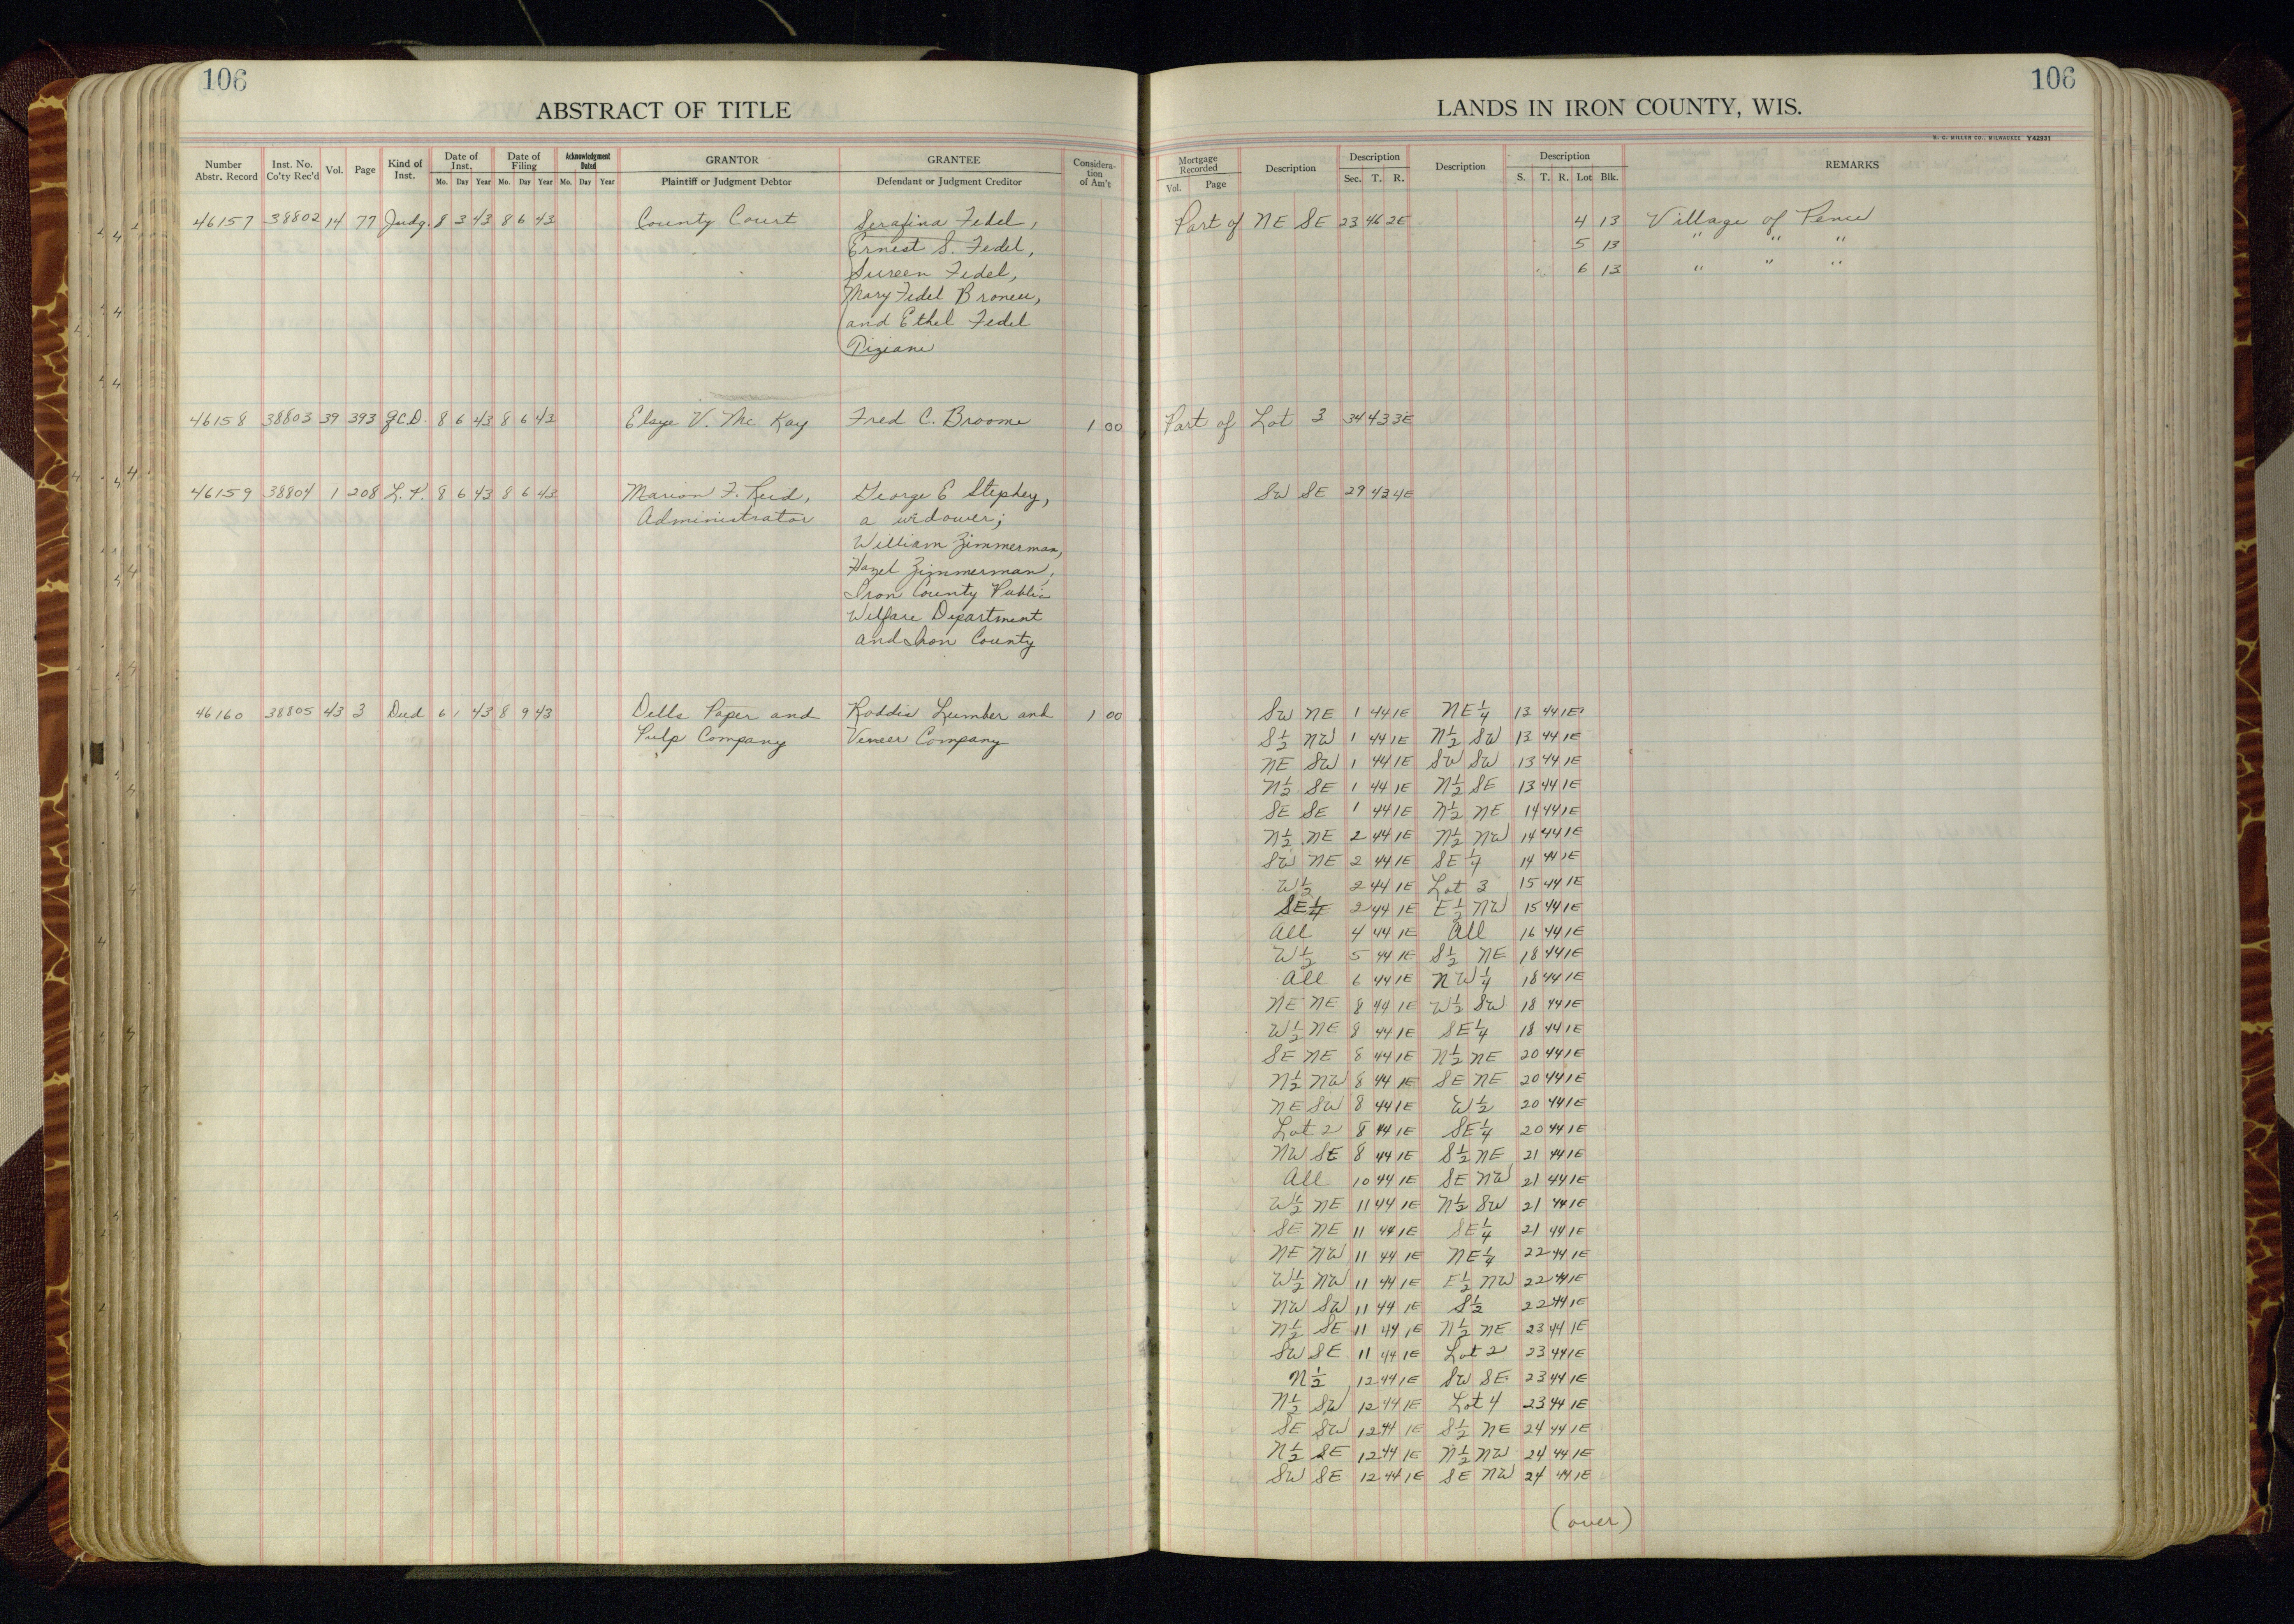 106
ABSTRACT OF TITLE
Number Abstr. Record
Inst. No. Co'ty Rec'd
Vol.
Page
Kind of Inst.
Date of Inst. Mo. Day Year
Date of Filing Mo. Day Year
Acknowledgment Dated Mo. Day Year
GRANTOR Plaintiff or Judgment Debtor
GRANTEE Defendant or Judgment Creditor
Considera- tion of Am't
46157 38802 14 77 Judg. 8 3 43 8 6 43 County Court Serafina Fedel,
Ernest S. Fedel,
Sureen Fedel,
Mary Fedel
and Ethel Fedel
46158 38803 39 393 Q.C.D. 8 6 43 8 6 43 V. Mc Kay Fred C. Broome 1 00
46159 38804 1 208 L.P. 8 6 43 8 6 43 Marion F. Reid, George E Stephey,
Administrator a widower;
William Zimmerman,
Hazel Zimmerman,
Iron County Public
Welfare Department
and Iron County
46160 38805 43 3 Deed 6 1 43 8 9 43 Dells Paper and Roddis Lumber and 1 00
Pulp Company Veneer Company
106
LANDS IN IRON COUNTY, WIS.
H. C. MILLER CO., MILWAUKEE Y42931
Mortgage Recorded Vol. Page
Description
Description Sec. T. R.
Description
Description S. T. R. Lot Blk.
REMARKS
Part of NE SE 23 46 2E 4 13 Village of Pence
5 13 " " "
6 13 " " "
Part of Lot 3 34 43 3E
SW SE 29 43 4E
SW NE 1 44 1E NE 1/4 13 44 1E
S 1/2 NW 1 44 1E N 1/2 SW 13 44 1E
NE SW 1 44 1E SW SW 13 44 1E
N 1/2 SE 1 44 1E N 1/2 SE 13 44 1E
SE SE 1 44 1E N 1/2 NE 14 44 1E
N 1/2 NE 2 44 1E N 1/2 NW 14 44 1E
SW NE 2 44 1E SE 1/4 14 44 1E
W 1/2 2 44 1E Lot 3 15 44 1E
SE 1/4 2 44 1E E 1/2 NW 15 44 1E
All 4 44 1E All 16 44 1E
W 1/2 5 44 1E S 1/2 NE 18 44 1E
All 6 44 1E NW 1/4 18 44 1E
NE NE 8 44 1E W 1/2 SW 18 44 1E
W 1/2 NE 8 44 1E SE 1/4 18 44 1E
SE NE 8 44 1E N 1/2 NE 20 44 1E
N 1/2 NW 8 44 1E SE NE 20 44 1E
NE SW 8 44 1E W 1/2 20 44 1E
Lot 2 8 44 1E SE 1/4 20 44 1E
NW SE 8 44 1E S 1/2 NE 21 44 1E
All 10 44 1E SE NW 21 44 1E
W 1/2 NE 11 44 1E N 1/2 SW 21 44 1E
SE NE 11 44 1E SE 1/4 21 44 1E
NE NW 11 44 1E NE 1/4 22 44 1E
W 1/2 NW 11 44 1E E 1/2 NW 22 44 1E
NW SW 11 44 1E S 1/2 22 44 1E
N 1/2 SE 11 44 1E N 1/2 NE 23 44 1E
SW SE 11 44 1E Lot 2 23 44 1E
N 1/2 12 44 1E SW SE 23 44 1E
N 1/2 SW 12 44 1E Lot 4 23 44 1E
SE SW 12 44 1E S 1/2 NE 24 44 1E
N 1/2 SE 12 44 1E N 1/2 NW 24 44 1E
SW SE 12 44 1E SE NW 24 44 1E
(over)